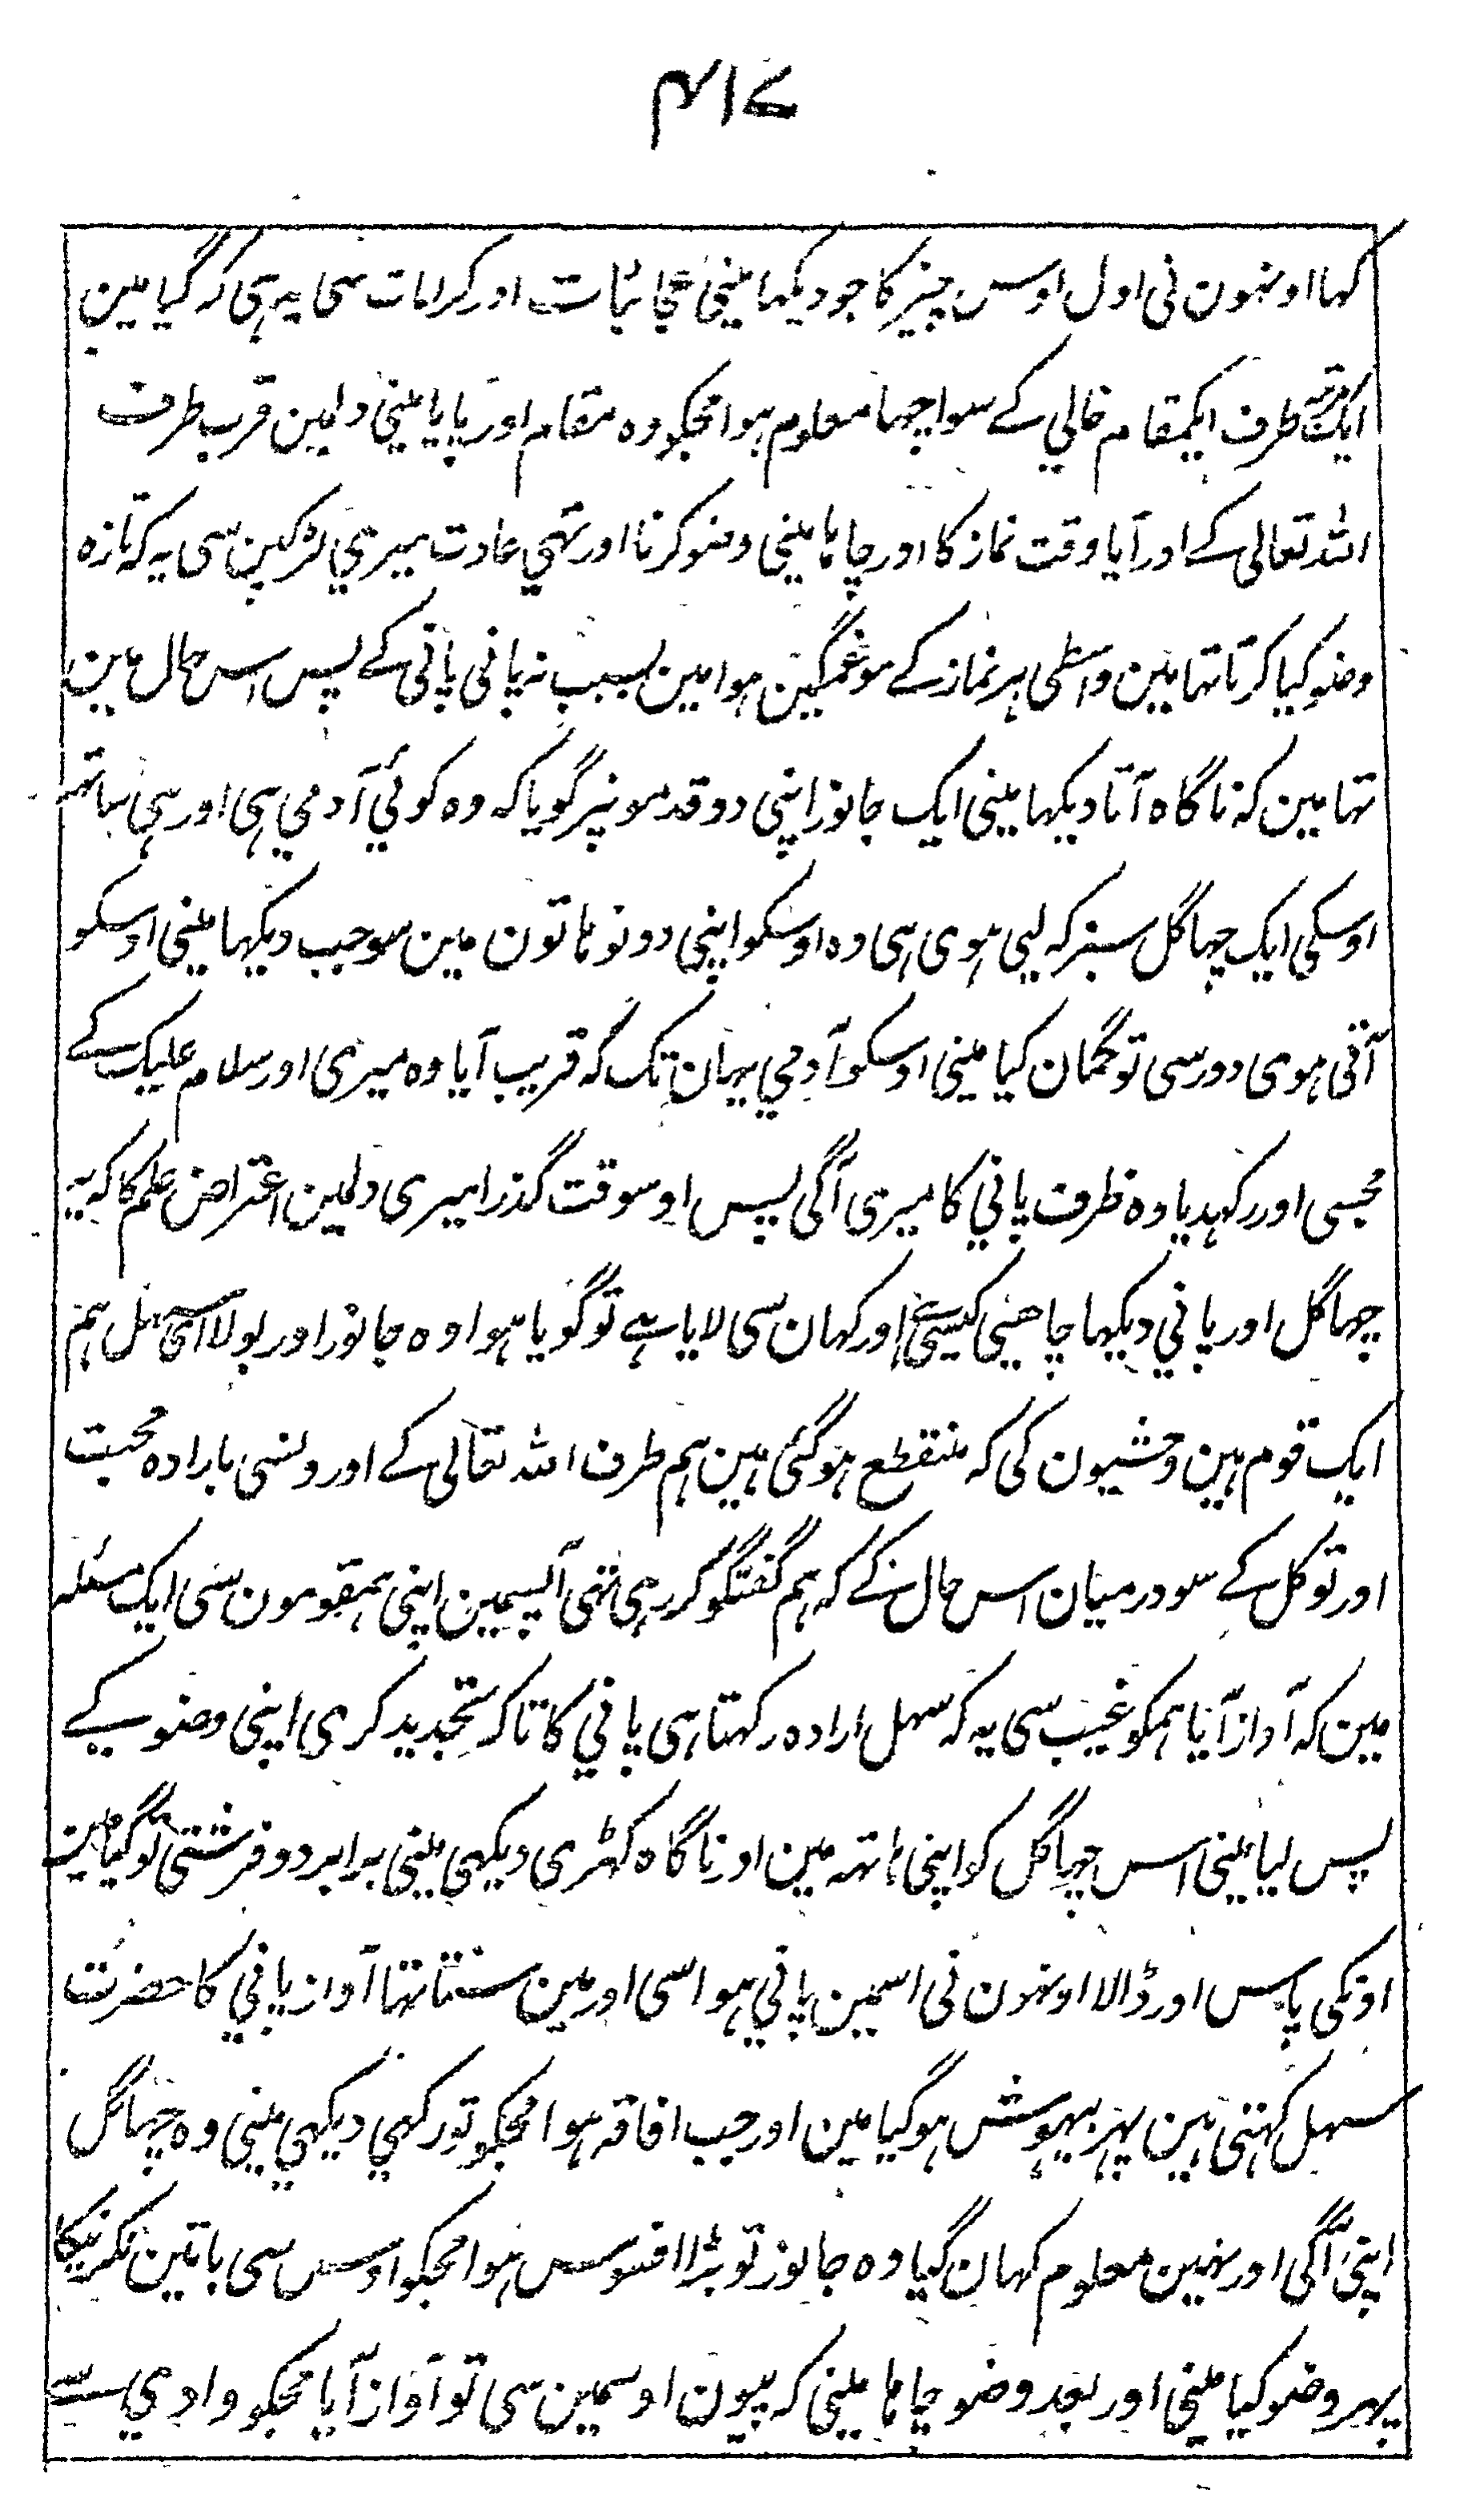 ۴۱۷
کہا اونہون نی اول اوس چیز کا جو دیکہا مینی عجائبات اور کرامات سی یہ ہی کہ گیا مین
ایک مرتبہ طرف ایکمقام خالي کے سو اچہا معلوم ہوا مجکو وہ مقام اور پایا مینی دلمین قرب طرف
اللہ تعالی کے اور آیا وقت نماز کا اور چاہا مینی وضو کرنا اور تہي عادت میري لڑکپن سی یہ کہ تازہ
وضو کیا کرتا تہا مین واسطی ہر نماز کے سو غمگین ہوا مین بسبب نہ پانی پانی کے پس اس حال مین
تہا مین کہ ناگاہ آتا دیکہا مینی ایک جانور اپنی دو قدمونپر گویا کہ وہ کوئي آدمي ہی اور ہی ساتہہ
اوسکی ایک چہاگل سبز کہ لیی ہوی ہی وہ اوسکو اپنی دونو ہاتون مین سو جب دیکہا مینی اوسکو
آتی ہوی دور سی تو گمان کیا مینی اوسکو آدمي یہان تک کہ قریب آیا وہ میری اور سلام علیک کے
مجسی اور رکہدیا وہ ظرف پاني کا میری آگی پس اوسوقت گذرا میری دلمین اعتراض علم کا کہ یہ
چہاگل اور پاني دیکہا چاہیئی کیسی ہے اور کہان سی لایا ہے تو گویا ہوا وہ جانور اور بولا ای سہل ہم
ایک قوم ہین وحشیون کی کہ منقطع ہو گئی ہین ہم طرف اللہ تعالی کے اور ولنسی بارادہ محبت
اور توکل کے سو درمیان اس حال کے کہ ہم گفتگو کر رہی تہی آپسمین اپنی ہمقومون سی ایک مسئلہ
مین کہ آواز آیا ہمکو غیب سی یہ کہ سہل ارادہ رکہتا ہی پاني کا تا کہ تجدید کری اپنی وضو کے
پس لیا مینی اس چہاگل کو اپنی ہاتہہ مین اور ناگاہ کہڑی دیکہي مینی برابر دو فرشتی تو گیا مین
اونکی پاس اور ڈالا اونہون نی اسمین پاني ہوا سی اور مین سنتا تہا آواز پاني کا حضرت
سہل کہتی ہین پہر بیہوش ہو گیا مین اور جب افاقہ ہوا مجکو تو رکہي دیکہي مینی وہ چہاگل
اپنی آگی اور نہین معلوم کہان گیا وہ جانور تو بڑا افسوس ہوا مجکو اوس سی باتین نکرنیکا
پہر وضو کیا مینی اور بعد وضو چاہا مینی کہ پیون اوسمین سی تو آواز آیا مجکو وادي سے